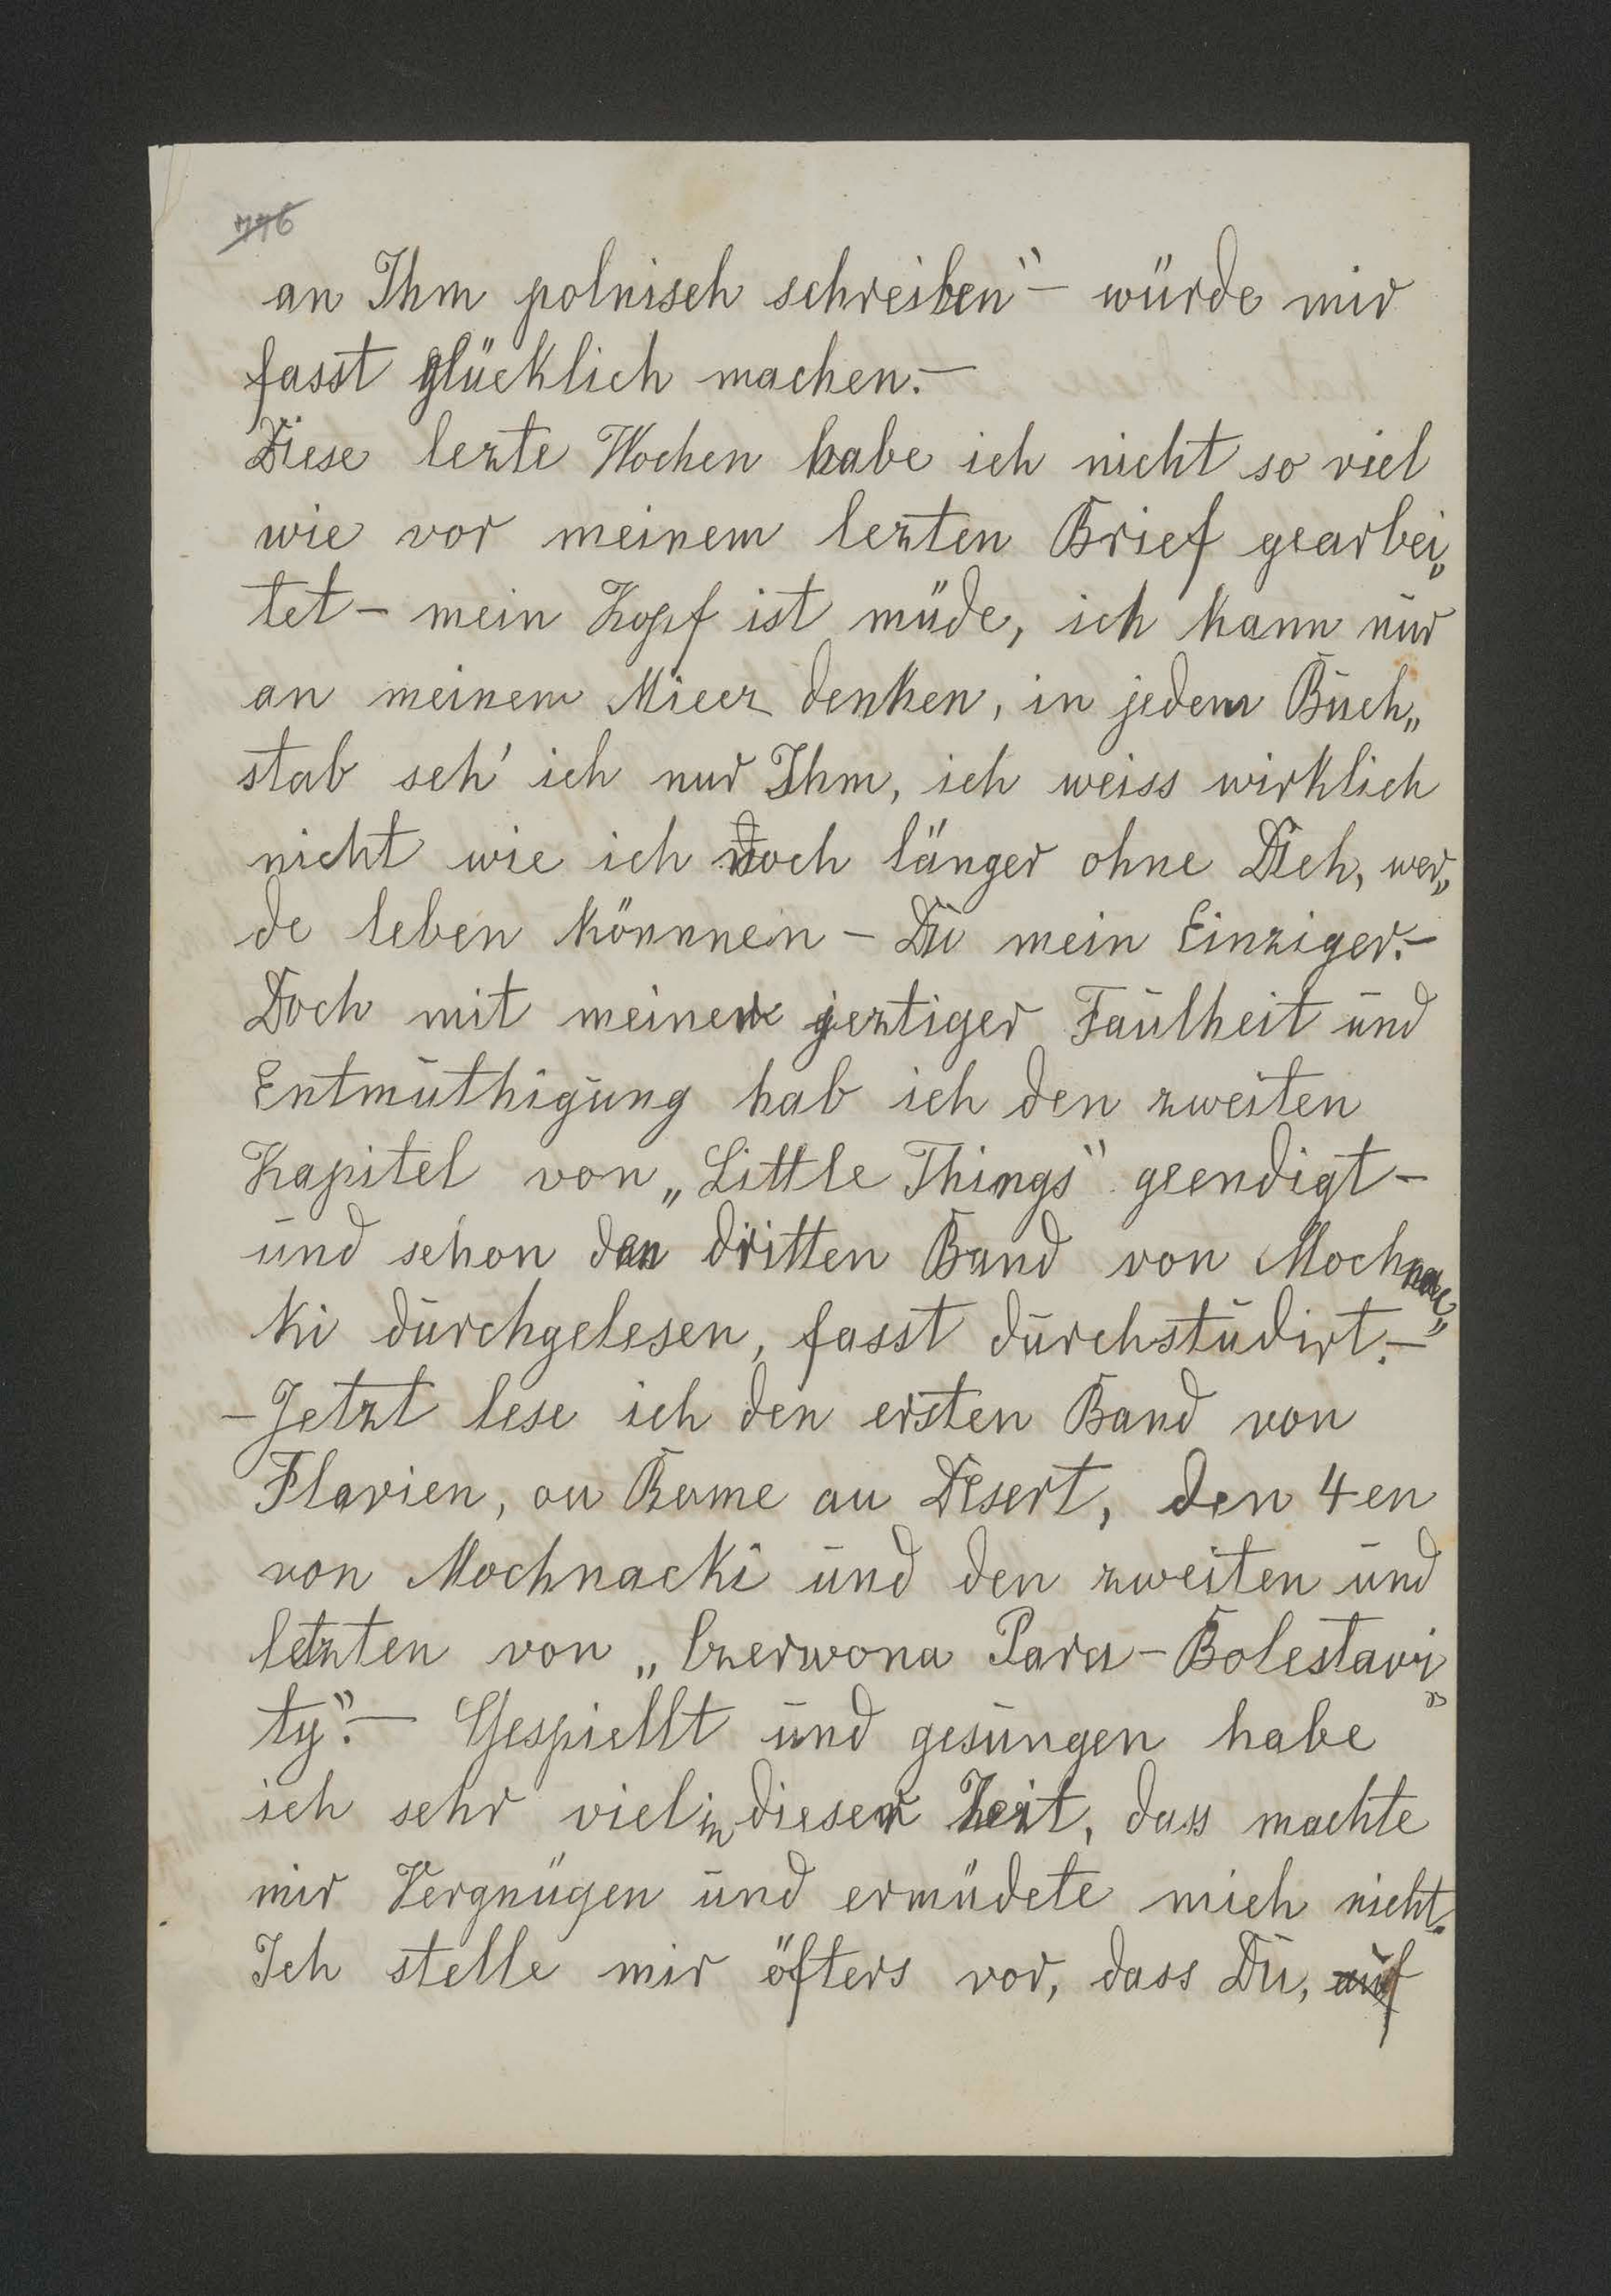 an Ihm polnisch schreiben“ – würde mir
fasst glücklich machen. –
Diese lezte Wochen habe ich nicht so viel
wie vor meinem lezten Brief gearbei„
tet – mein Kopf ist müde, ich kann nur
an meinem Miecz denken, in jedem Buch„
stab seh' ich nur Ihm, ich weiss wirklich
nicht wie ich noch länger ohne Dich, wer„
de leben könnnen – Du mein Einziger. –
Doch mit meiner jeztiger Faulheit und
Entmuthigung hab ich den zweiten
Kapitel von „Little Things“ geendigt –
und schon den dritten Band von Mochnac„
ki durchgelesen, fasst durchstudirt. –
– Jetzt lese ich den ersten Band von
Flavien, ou Rome au Désert, den 4en
von Mochnacki und den zweiten und
letzten von „Czerwona Para – Bolestawi„
ty“. – Gespiellt und gesungen habe
ich sehr viel in dieser Zeit, dass machte
mir Vergnügen und ermüdete mich nicht.
Ich stelle mir öfters vor, dass Du, auf